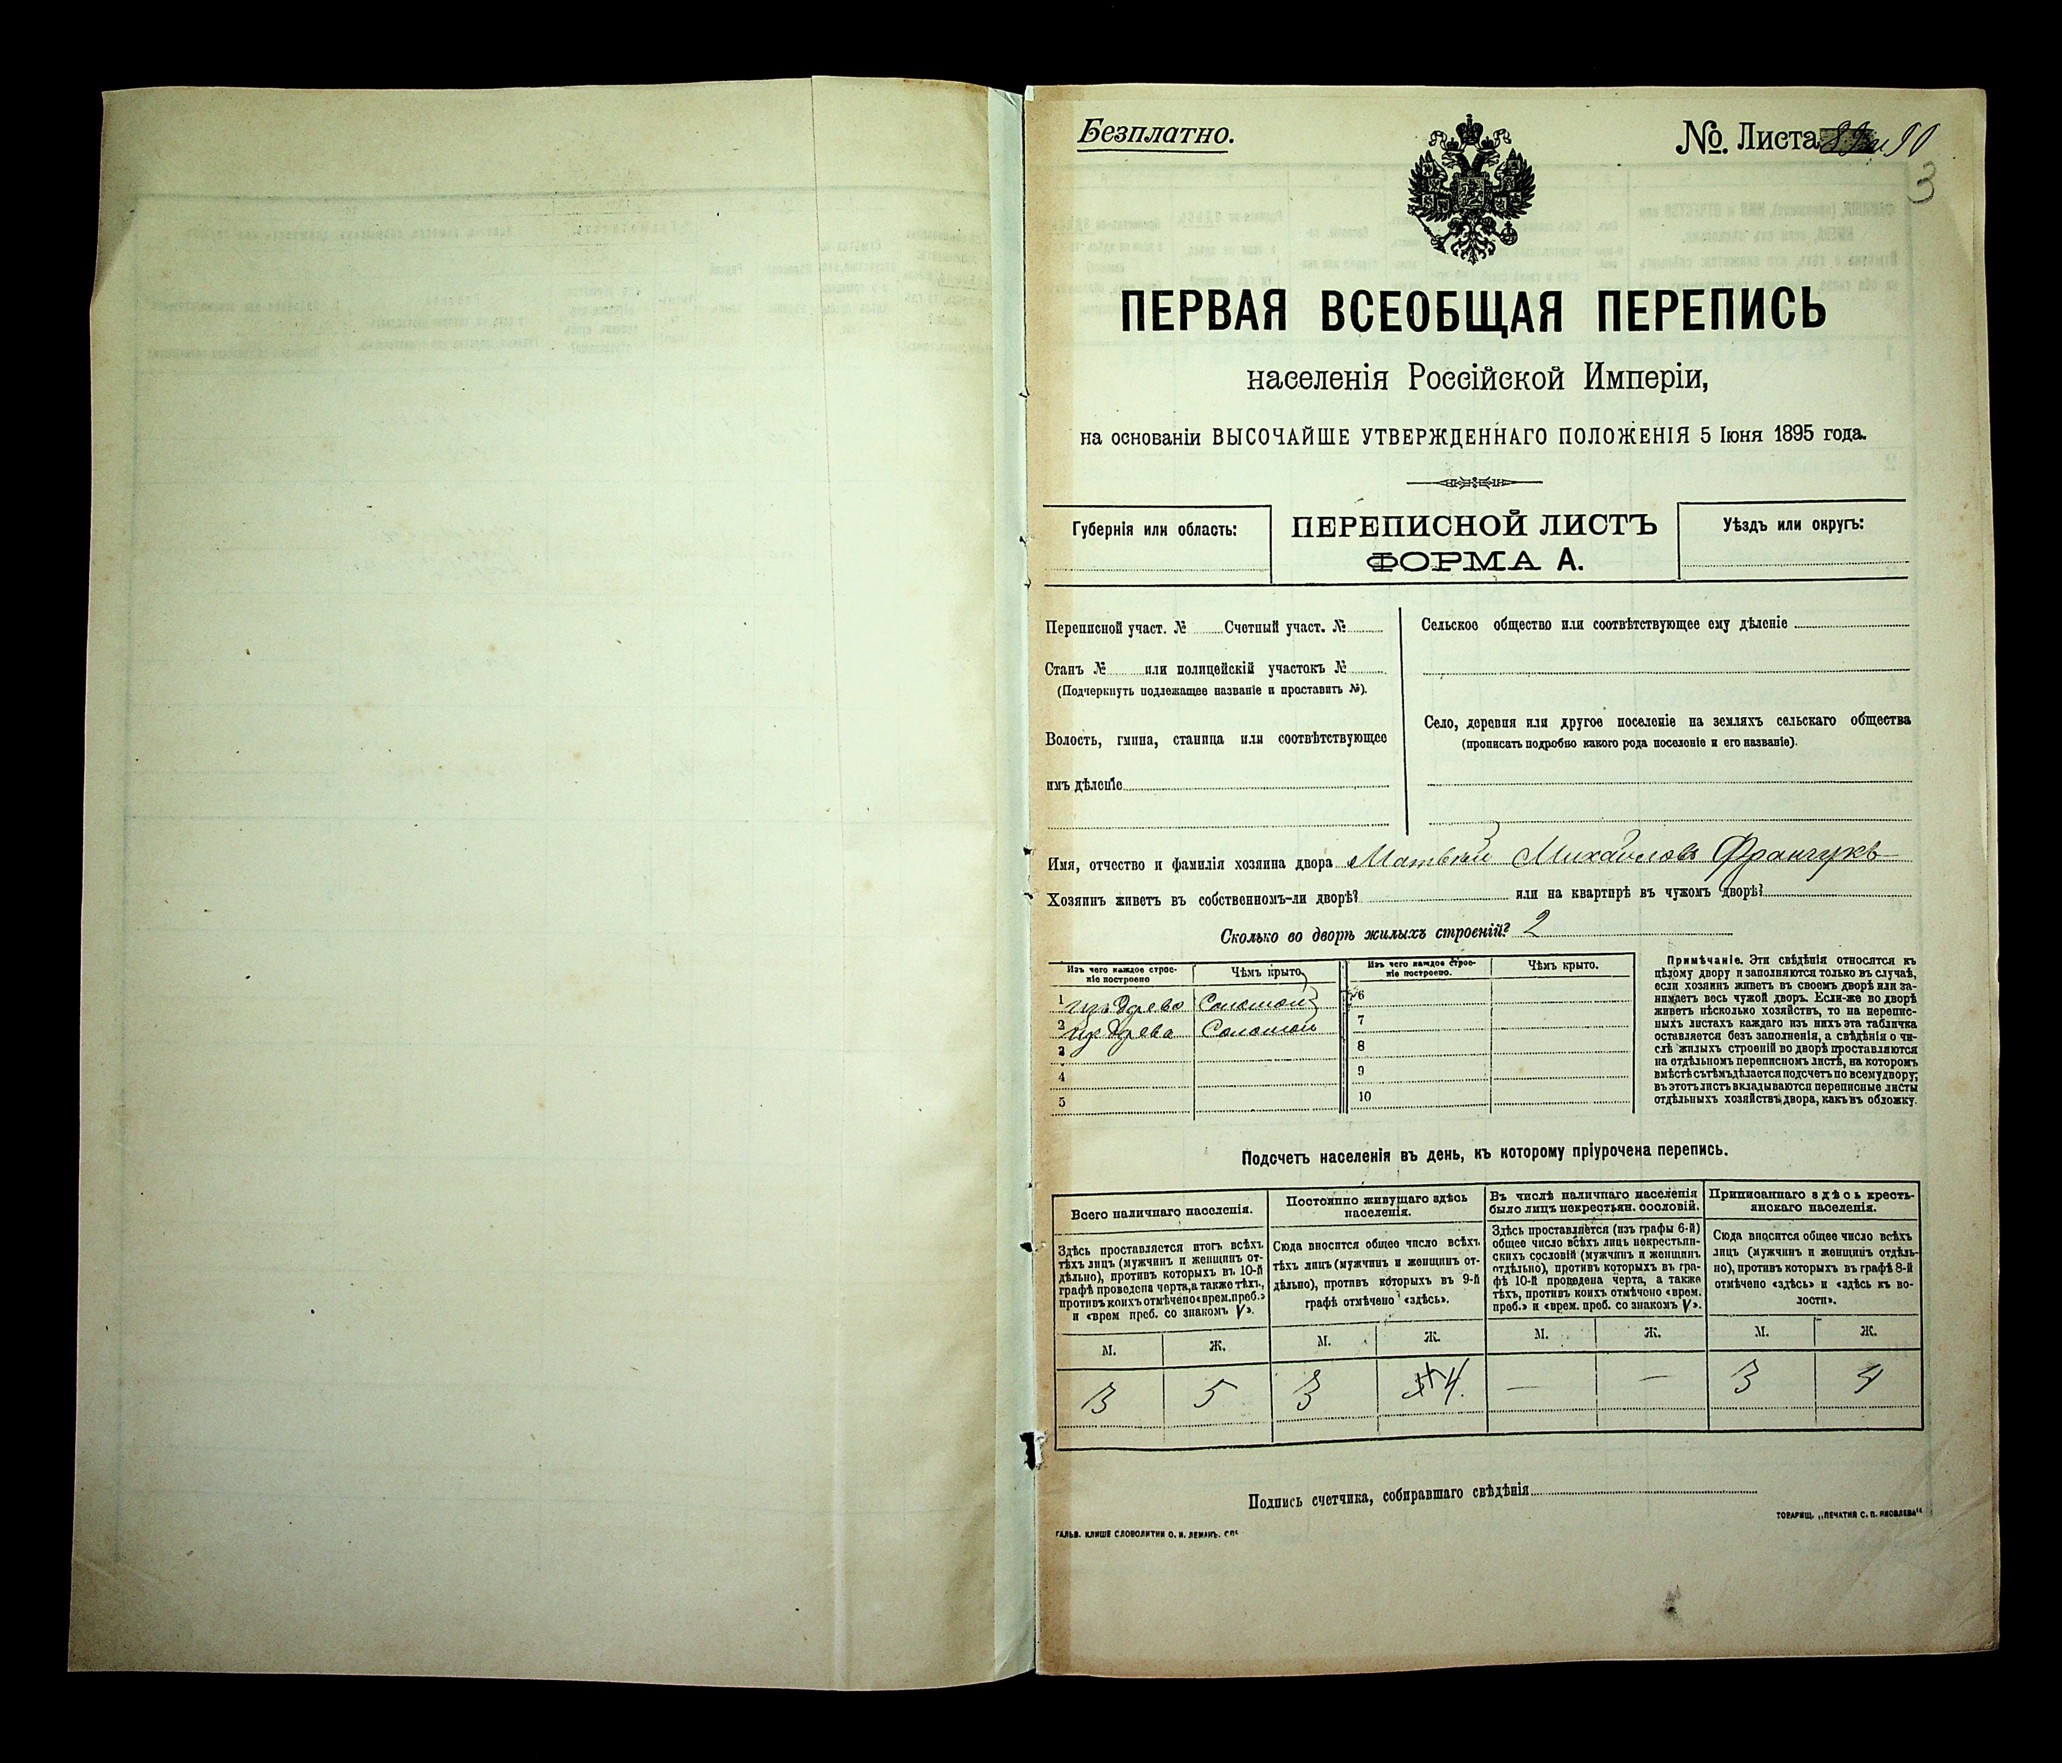 Безплатно.
№. Листа 90
3
ПЕРВАЯ ВСЕОБЩАЯ ПЕРЕПИСЬ
населенія Россійской Имперіи,
на основаніи ВЫСОЧАЙШЕ УТВЕРЖДЕННАГО ПОЛОЖЕНІЯ 5 Іюня 1895 года.
Губернія или область:
ПЕРЕПИСНОЙ ЛИСТЪ
ФОРМА А.
Уѣздъ или округъ:
Переписной участ. № Счетный участ. №
Станъ № или полицейскій участокъ №
(Подчеркнуть подлежащее названіе и проставить №).
Волость, гмина, станица или соотвѣтствующее
имъ дѣленіе
Сельское общество или соотвѣтствующее ему дѣленіе
Село, деревня или другое поселеніе на земляхъ сельскаго общества
(прописать подробно какого рода поселеніе и его названіе).
Имя, отчество и фамилія хозяина двора Матвѣй Михайловъ Франчукъ
Хозяинъ живетъ въ собственномъ-ли дворѣ? или на квартирѣ въ чужомъ дворѣ?
Сколько во дворѣ жилыхъ строеній? 2
Изъ чего каждое строе-
ніе построено
Чѣмъ крыто
Изъ чего каждое строе-
ніе построено.
Чѣмъ крыто.
1 изъ древа Соломой 6
2 изъ древа Соломой 7
3 8
4 9
5 10
Примѣчаніе. Эти свѣдѣнія относятся къ
цѣлому двору и заполняются только въ случаѣ,
если хозяинъ живетъ въ своемъ дворѣ или за-
нимаетъ весь чужой дворъ. Если-же во дворѣ
живетъ нѣсколько хозяйствъ, то на перепис-
ныхъ листахъ каждаго изъ нихъ эта табличка
оставляется безъ заполненія, а свѣдѣнія о чи-
слѣ жилыхъ строеній во дворѣ проставляются
на отдѣльномъ переписномъ листѣ, на которомъ
вмѣстѣ съ тѣмъ дѣлается подсчетъ по всему двору;
въ этотъ листъ вкладываются переписные листы
отдѣльныхъ хозяйствъ двора, какъ въ обложку.
Подсчетъ населенія въ день, къ которому пріурочена перепись.
Всего наличнаго населенія.
Здѣсь проставляется итогъ всѣхъ
тѣхъ лицъ (мужчинъ и женщинъ от-
дѣльно), противъ которыхъ въ 10-й
графѣ проведена черта, а также тѣхъ,
противъ коихъ отмѣчено «врем. преб.»
и «врем преб. со знакомъ V».
Постоянно живущаго здѣсь
населенія.
Сюда вносится общее число всѣхъ
тѣхъ лицъ (мужчинъ и женщинъ от-
дѣльно), противъ которыхъ въ 9-й
графѣ отмѣчено «здѣсь».
Въ числѣ наличнаго населенія
было лицъ некрестьян. сословій.
Здѣсь проставляется (изъ графы 6-й)
общее число всѣхъ лицъ некрестьян-
скихъ сословій (мужчинъ и женщинъ
отдѣльно), противъ которыхъ въ гра-
фѣ 10-й проведена черта, а также
тѣхъ, противъ коихъ отмѣчено «врем.
преб.» и «врем. преб. со знакомъ V».
Приписаннаго здѣсь кресть-
янскаго населенія.
Сюда вносится общее число всѣхъ
лицъ (мужчинъ и женщинъ отдѣль-
но), противъ которыхъ въ графѣ 8-й
отмѣчено «здѣсь» и «здѣсь къ во-
лости».
М. Ж. М. Ж. М. Ж. М. Ж.
3 5 3 4. — — 3 4
Подпись счетчика, собиравшаго свѣдѣнія
ГАЛЬВ. КЛИШЕ СЛОВОЛИТНИ О. И. ЛЕМАНЪ. СПб
ТОВАРИЩ. „ПЕЧАТНЯ С. П. ЯКОВЛЕВА“